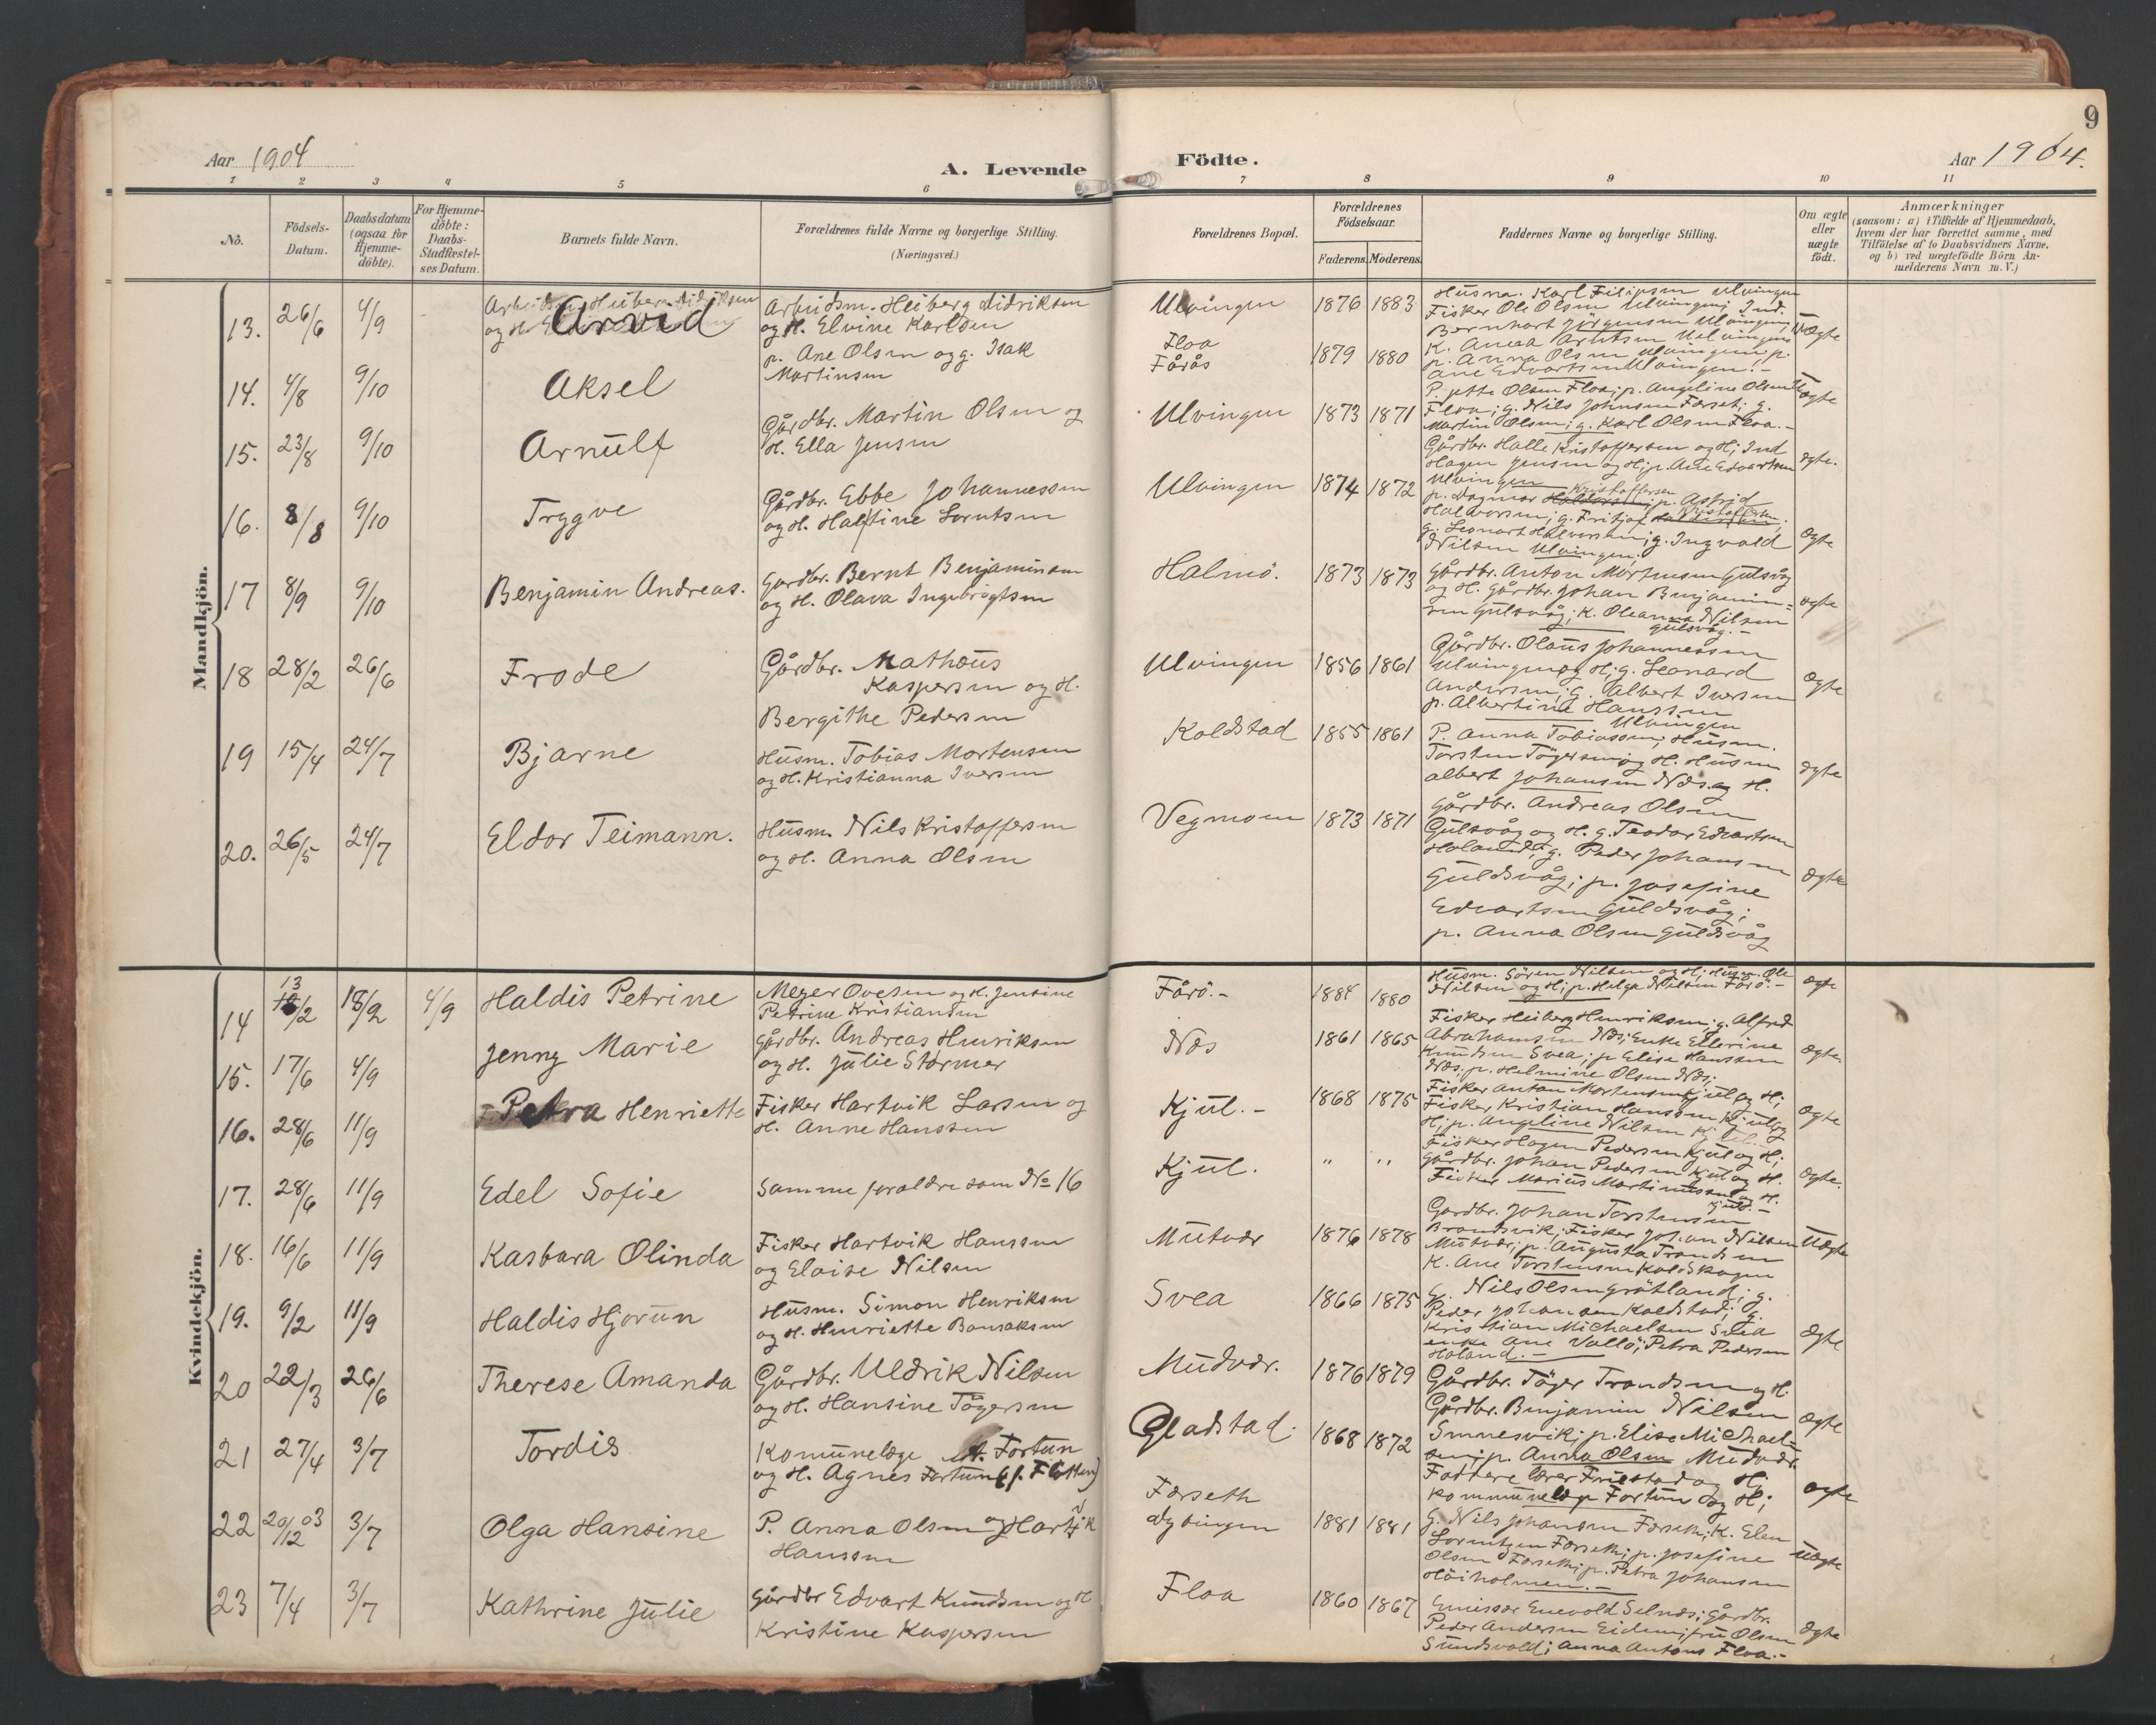 Aar 1904
A. Levende
1 2 3 4 5 6
Nô.
Födsels-
Datum.
Daabsdatum
(ogsaa for
Hjemme-
döbte).
For Hjemme-
döbte:
Daabs-
Stadfæstel-
ses Datum.
Barnets fulde Navn.
Forældrenes fulde Navne og borgerlige Stilling.
(Næringsvei.)
Mandkjön.
13. 26/6 4/9 Arvid
Arbeidsm. Heiberg Didriksen
og H. Elvine Karlsen
14. 4/8 9/10 Aksel
p. Ane Olsen og g. Isak
Martinsen
15. 23/8 9/10 Arnulf
Gårdbr. Martin Olsen og
H. Ella Jensen
16. 8/8 9/10 Trygve
Gårdbr. Ebbe Johannessen
og H. Halftine Lorntsen
17 8/9 9/10 Benjamin Andreas.
Gardbr. Bernt Benjaminsen
og H. Olava Ingebrigtsen
18 28/2 26/6 Frode
Gårdbr. Mathæus
Kaspersen og H.
Bergithe Pedersen
19 15/4 24/7 Bjarne
Husm. Tobias Mortensen
og H. Kristianna Iversen
20. 26/5 24/7 Eldor Teimann.
Husm. Nils Kristoffersen
og H. Anna Olsen
Kvindekjön.
14 13/2 18/2 4/9 Haldis Petrine
Meyer Ovesen og H. Jensine
Petrine Kristiansen
15. 17/6 4/9 Jenny Marie
gårdbr. Andreas Henriksen
og H. Julie Stormer
16. 28/6 11/9 Petra Henriette
Fisker Hartvik Larsen og
H. Anne Hanssen
17. 28/6 11/9 Edel Sofie
Samme forældre som No 16
18. 16/6 11/9 Kasbara Olinda
Fisker Hartvik Hanssen
og Eloise Nilsen
19. 9/2 11/9 Haldis Hjorun
Husm. Simon Henriksen
og H. Henriette Bonsaksen
20 22/3 26/6 Therese Amanda
Gårdbr. Uldrik Nilsen
og H. Hansine Tøgersen
21 27/4 3/7 Tordis
Komunelæge A. Fortun
og H. Agnes Fortun (f. Flotten)
22 20/12 03 3/7 Olga Hansine
P. Anna Olsen og Hartvik
Hanssen
23 7/4 3/7 Kathrine Julie
Gårdbr Edvart Knudsen og H.
Kristine Kaspersen
9
Födte.
Aar 1904.
7 8 9 10 11
Forældrenes Bopæl.
Forældrenes
Födselsaar.
Faderens. Moderens.
Faddernes Navne og borgerlige Stilling.
Om ægte
eller
uægte
födt.
Anmærkninger
(saasom: a) i Tilfælde af Hjemmedaab,
hvem der har forrettet samme, med
Tilföielse af to Daabsvidners Navne,
og b) ved uægtefödte Börn An-
melderens Navn m. V.)
Ulvingen 1876 1883
Husm. Karl Filipsen Ulvingen
Fisker Ole Olsen Ulvingen; Ind.
Bernhart Jörgensen Ulvingen
Uægte
Floa
Fårås 1879 1880
K. Anna Arntsen Ulvingen
p. Anna Olsen Ulvingen; p.
Ane Edvartsen Ulvingen.-
P. Jette Olsen Floa; p. Angeline Olsen
Uægte
Ulvingen 1873 1871
Floa; g. Nils Johnsen Forset; g.
Martin Olsen; g. Karl Olsen Floa.-
Gårdbr. Halle Kristoffersen og H; Ind
Hagen Jensen og H; p. Ane Edvartsen
Ulvingen
ægte.
Ulvingen 1874 1872
p. Dagmar Kristoffersen; p. Astrid
Halvorsen; g. Fritjof Kristoffersen
g. Leonart Halvorsen; g. Ingvald
Nilsen Ulvingen.
ægte
Halmö. 1873 1873
Gårdbr. Anton Mortensen Gulsvåg
og H. Gårdbr. Johan Benjamin-
sen Gulsvåg; K. Oleanna Nilsen
Gulsvåg.-
ægte
Ulvingen 1856 1861
Gårdbr. Olaus Johannessen
Ulvingen og H; g. Leonard
Andersen; g. Albert Iversen
p. Albertine Hanssen
Ulvingen
ægte
Koldstad 1855 1861
P. Anna Tobiassen; Husm.
Torsten Tögersen og H. Husm
Albert Johansen Næs og H.
ægte
Vegmoen 1873 1871
Gårdbr. Andreas Olsen
Gulsvåg og H. g. Teodor Edvartsen
Holand; g. Peder Johansen
Guldsvåg; p. Josefine
Edvartsen Guldsvåg;
p. Anna Olsen Guldsvåg
ægte
Fårö.- 1884 1880
Husm. Sören Nilsen og H; Husm. Ole
Nilsen og H; p. Helga Nilsen Fårö.-
ægte
Næs 1861 1865
Fisker Heiberg Henriksen; g. Alfred
Abrahamsen Næs; Enke Ellerine
Knudsen Svea; p. Elise Hanssen
Næs; p. Helmine Olsen Næs;
ægte.
Kjul.- 1868 1875
Fisker Anton Mortensen Kjul og H;
Fisker Kristian Hanssen Kjul og
H; p. Angeline Nilsen Kjul.-
ægte
Kjul. " "
Fisker Hagen Pedersen Kjul og H;
Gårdbr. Johan Pedersen Kjul og H.
Fisker Marius Martinussen og H.
Kjul.-
ægte.
Mutvær 1876 1878
Gardbr. Johan Torstensen
Brandsvik; Fisker Johan Nilsen
Mutvær; p. Augusta Trondsen
K. Ane Torstensen Koldskogen
Uægte
Svea 1866 1875
G. Nils Olsen Grötland; g.
Peder Johansen Koldstad; g.
Kristian Michaelsen Svea
enke Ane Vallö; Petra Pedersen
Holand.-
Ægte
Mudvær. 1876 1879
Gårdbr. Töger Trondsen og H.
Gårdbr. Benjamin Nilsen
Smnesvik; p. Elise Michael-
sen; p. Anna Olsen Mudvær.
ægte
Gladstad. 1868 1872
Faddere lærer Friestad og H;
Kommunelæge Fortun og H;
ægte
Forseth
Dybingen 1881 1881
G. Nils Johansen Forseth; K. Elen
Lorentzen Forseth; p. Josefine
Olsen Forseth; p. Petra Johansen
Höiholmen.-
Uægte
Floa 1860 1867
Emissær Enevold Selnæs; Gårdbr.
Peder Andersen Eidem; fru Olsen
Sundsvold; Anna Antons Floa.-
Ægte